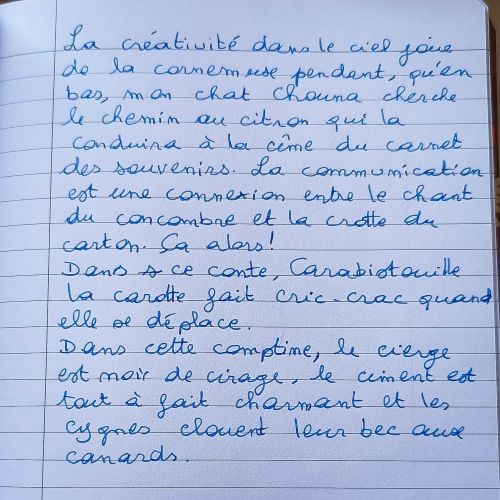 La créativité dans le ciel joue
de la cornemuse pendant, qu'en
bas, mon chat Chouna cherche
le chemin au citron qui la
conduira à la cîme du carnet
des souvenirs. La communication
est une connexion entre le chant
du concombre et la crotte du
carton. Ça alors!
Dans ce conte, Carabistouille
la carotte fait cric-crac quand
elle se déplace.
Dans cette comptine, le cierge
est noir de cirage, le ciment est
tout à fait charmant et les
cygnes clouent leur bec aux
canards.